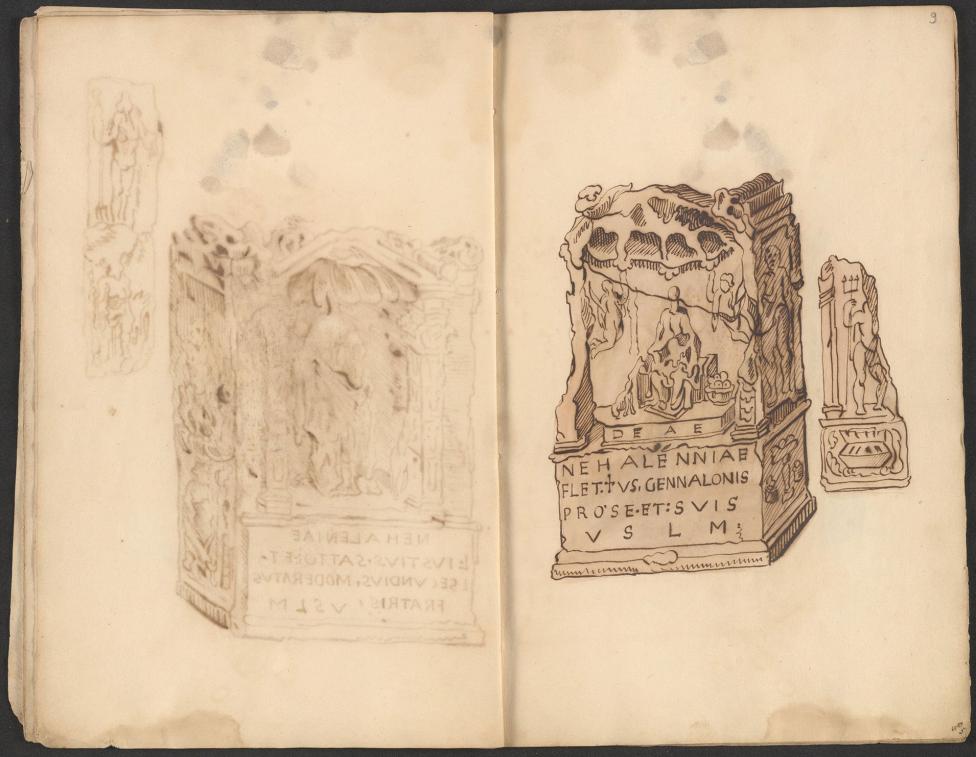 NEHALENIAE
L:IUSTIVS·SATTO:ET·
L SECVNDIVS, MODERATVS
FRATRIS / VSLM
9
DEAE
NEHALENNIAE
FLET:†VS, GENNALONIS
PRO'SE·ET:SVIS
V S L M